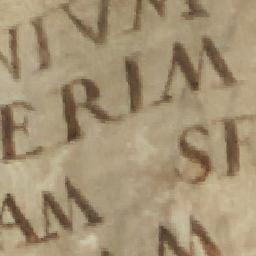 NIVM
ERIM
AM SE
AM